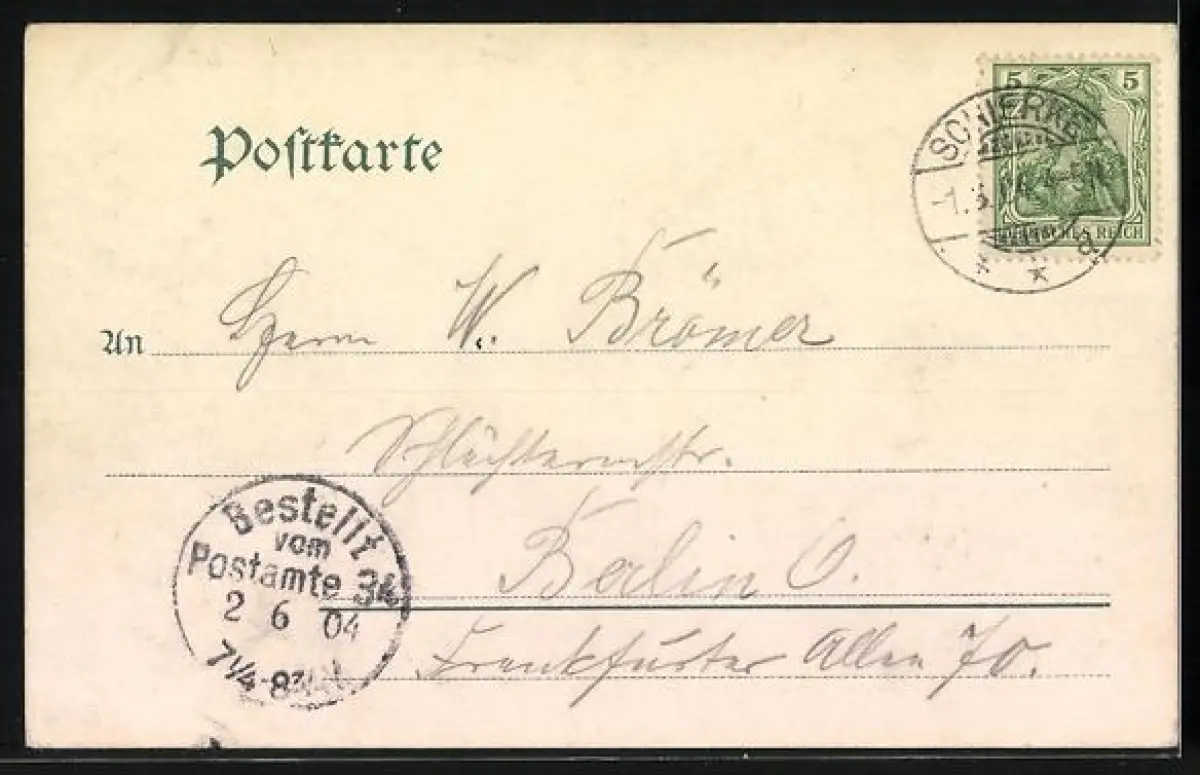 5 5
SCHIERKE
DEUTSCHES REICH
a
Postkarte
An Herrn W. Brömer
Berlin O.
Frankfurter Allee 70.
Bestellt
vom
Postamte 34
2 6 04
7¼-8¾